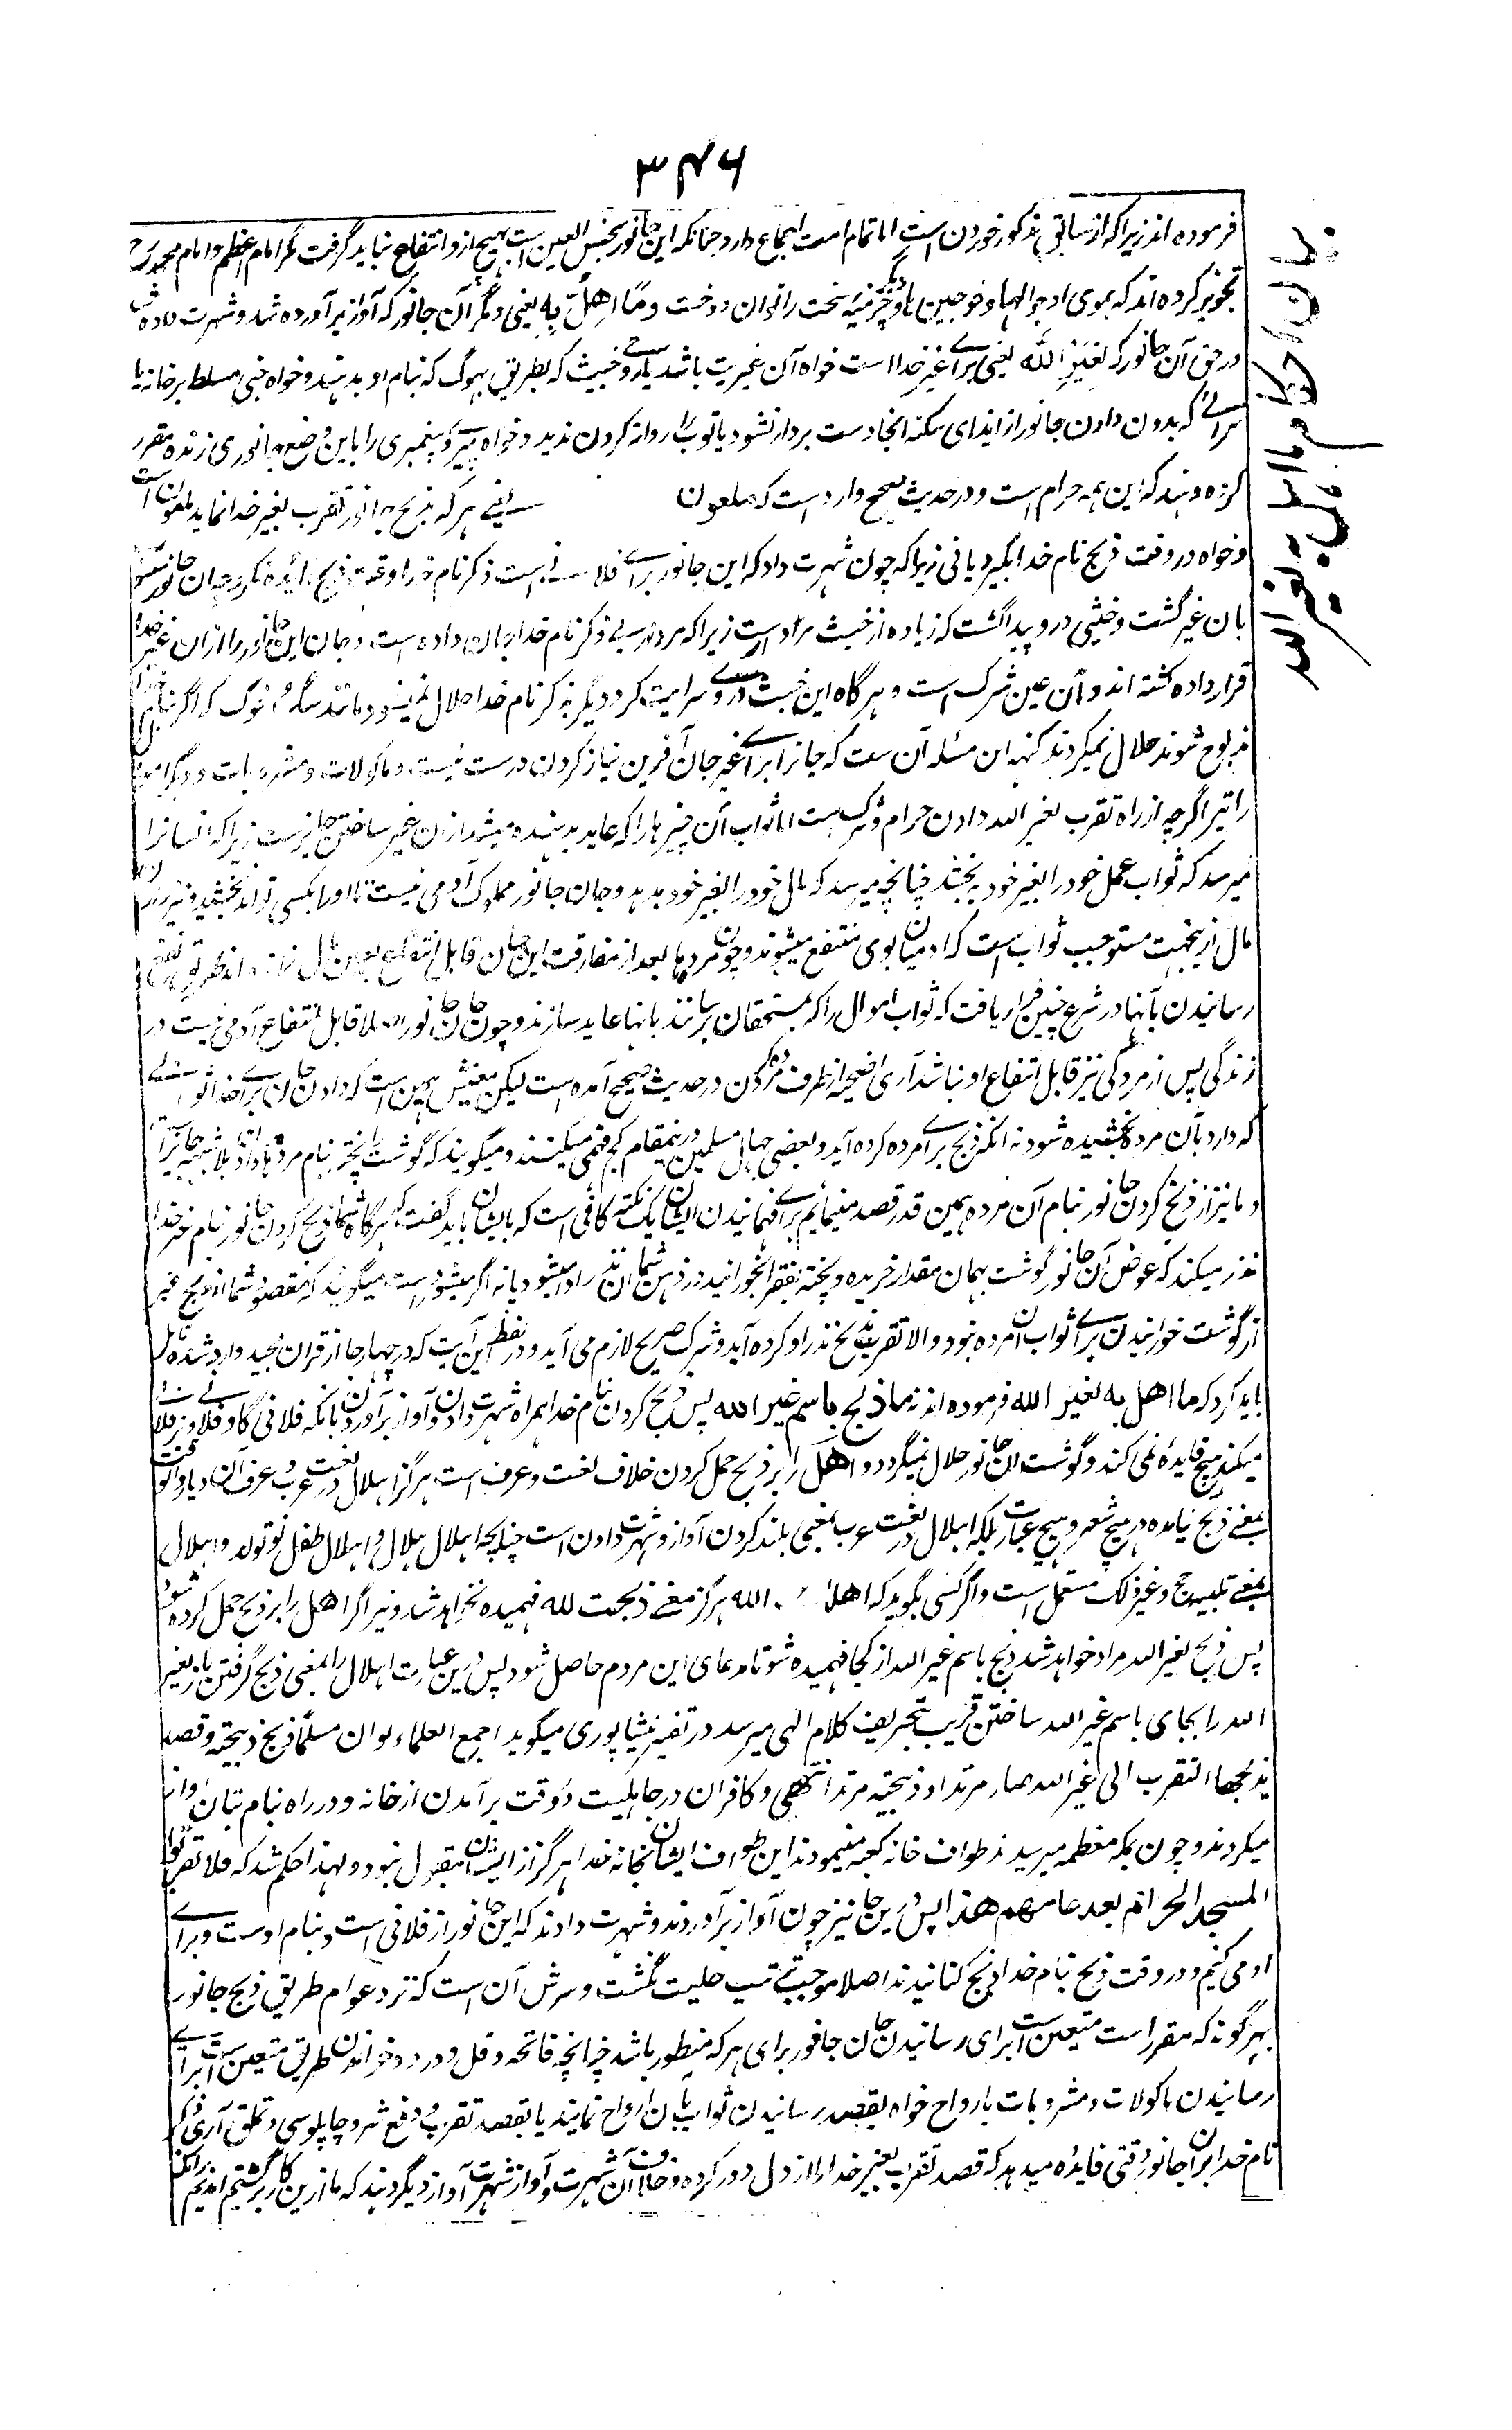 ۳۴۶
فرموده اند زیرا که از سابق مذکور خوردن است اما تمام امت اجماع دارد چنانکه این جانور نجس العین است بهیچ ازو انتفاع نباید گرفت مگر امام اعظم و امام محمد رح
تجویز کرده اند که بموی او جوالها و خوجین ها و دیگر چرمینه سخت را توان دوخت وما اهل به یعنی و دیگر آن جانور که آواز برآورده شد و شهرت داده شد
در حق آن جانور که لغیر الله یعنی برای غیر خدا است خواه آن غیر بت باشد یا روحی خبیث که بطریق بهوگ که بنام او بدهند و خواه جنی مسلط بر خانه یا
سرائی که بدون دادن جانور از ایذای سکنه انجا دست بردار نشود یا توپ را روانه کردن ندهد و خواه پیری و پیغمبری را باین وضع جانوری زنده مقرر
کرده دهند که این همه حرام است و در حدیث صحیح وارد است که ملعون یعنی هر که بذبح جانور تقرب بغیر خدا نماید ملعون است
و خواه در وقت ذبح نام خدا بگیرد یا نی زیرا که چون شهرت داد که این جانور برای فلانی است ذکر نام خدا وقت ذبح فائده نکرد چه آن جانور منسوب
بان غیر گشت و خبثی درو پیدا گشت که زیاده از خبث مردار است زیرا که مردار بی ذکر نام خدا جان داده است و جان این جانور را ازان غیر خدا
قرار داده کشته اند و آن عین شرک است و هرگاه این خبث در وی سرایت کرد دیگر بذکر نام خدا حلال نمیشود مانند سگ و خوک که اگر بنام خدا
مذبوح شوند حلال نمیگردند کنه این مسئله آن ست که جانرا برای غیر جان آفرین نیاز کردن درست نیست و ماکولات و مشروبات و دیگر اموال
را نیز اگرچه از راه تقرب لغیر الله دادن حرام و شرک ست اما ثواب آن چیزها را که عاید بدهنده میشد ازان غیر ساختن جایز ست زیرا که انسانرا
میرسد که ثواب عمل خود را بغیر خود بخشد چنانچه میرسد که مال خود را بغیر خود بدهد و جان جانور مملوک آدمی نیست تا او را بکسی تواند بخشید و نیز دادن
مال ازینجهت مستوجب ثواب است که ادمیان بوی منتفع میشوند و چون مردها بعد از مفارقت این جهان قابل انتفاع بعین مال نمانده اند طریق نفع
رسانیدن بآنها در شرع چنین قرار یافت که ثواب اموال را که بمستحقان برسانند بانها عاید سازند و چون جان جانور اصلا قابل انتفاع آدمی نیست در
زندگی پس از مردگی نیز قابل انتفاع او نباشد آری اضحیه از طرف مرده کردن در حدیث صحیح آمده است لیکن معنیش همین است که دادن جان برای خدا ثوابی
که دارد بآن مرده بخشیده شود نه انکه ذبح برای مرده کرده آید و بعضی جهال مسلمین درینمقام کج فهمی میکنند و میگویند که گوشت را پخته بنام مردها دادن بلا شبهه جایز است
و ما نیز از ذبح کردن جانور بنام آن مرده همین قدر قصد مینمائیم برای فهمانیدن ایشان یک نکته کافی است که بایشان باید گفت که هرگاه شما ذبح کردن جانور بنام غیر خدا
نذر میکنند که عوض آن جانور گوشت بهمان مقدار خریده و پخته بفقرا بخورانید در ذهن شما آن نذر ادا میشود یا نه اگر میشود راست میگویید که مقصود شما از ذبح غیر
از گوشت خورانیدن برای ثواب آن مرده نبود والا تقرب بذبح نذر او کرده آید و شرک صریح لازم می آید و در لفظ این آیت که در چهار جا از قران مجید وارد شده تامل
باید کرد که ما اهل به لغیر الله فرموده اند نه ما ذبح باسم غیر الله پس ذبح کردن بنام خدا همراه شهرت دادن و آواز برآوردن بانکه فلانی گاو و فلان بز فلانی
میکند هیچ فایده نمی کند و گوشت ان جانور حلال نمیگردد و اهل را بر ذبح حمل کردن خلاف لغت و عرف است هرگز اهلال در لغت عرب و عرف آن دیار و آنوقت
بمعنی ذبح نیامده در هیچ شعر و هیچ عبارت بلکه اهلال در لغت عرب بمعنی بلند کردن آواز و شهرت دادن است چنانچه اهلال هلال و اهلال طفل نو تولد و اهلال
بمعنی تلبیه حج و غیر ذلک مستعمل است و اگر کسی بگوید که اهللت الله هرگز معنی ذبحت لله فهمیده نخواهد شد و نیز اگر اهل را بر ذبح حمل کرده شود
پس ذبح بغیر الله مراد خواهد شد ذبح باسم غیر الله از کجا فهمیده شود تا مدعای این مردم حاصل شود پس درین عبارت اهلال را بمعنی ذبح گرفتن باز لغیر
الله را بجای باسم غیر الله ساختن قریب بتحریف کلام الهی میرسد در تفسیر نیشاپوری میگوید اجمع العلماء لو ان مسلما ذبح ذبیحة وقصد
بذبحها التقرب الی غیر الله صار مرتدا وذبیحته مرتد انتهی و کافران در جاهلیت در وقت برآمدن از خانه و در راه بنام بتان آواز
میکردند و چون بمکه معظمه میرسیدند طواف خانه کعبه مینمودند این طواف ایشان بخانه خدا هرگز از ایشان مقبول نبود و لهذا حکم شد که فلا تقربوا
المسجد الحرام بعد عامهم هذا پس درین جا نیز چون آواز برآوردند و شهرت دادند که این جانور از فلانی است و بنام اوست و برای
او می کنیم و در وقت ذبح بنام خدا ذبح کنانیدند اصلا موجب حلیت نگشت و سرش آن است که نزد عوام طریق ذبح جانور
بهر گونه که مقرر است متعین است برای رسانیدن جان جانور برای هر که منظور باشد چنانچه فاتحه و قل و درود خواندن طریق متعین است برای
رسانیدن ماکولات و مشروبات بارواح خواه بقصد رسانیدن ثواب بآن ارواح نمایند یا بقصد تقرب و دفع شر و چاپلوسی و تملق آری ذکر
نام خدا بران جانور وقتی فائده میدهد که قصد تقرب بغیر خدا را از دل دور کرده و خلاف آن شهرت و آواز شهرت آواز دیگر دهند که ما ازین کار برگشتیم
بیان احکام ما اهل به لغیر الله